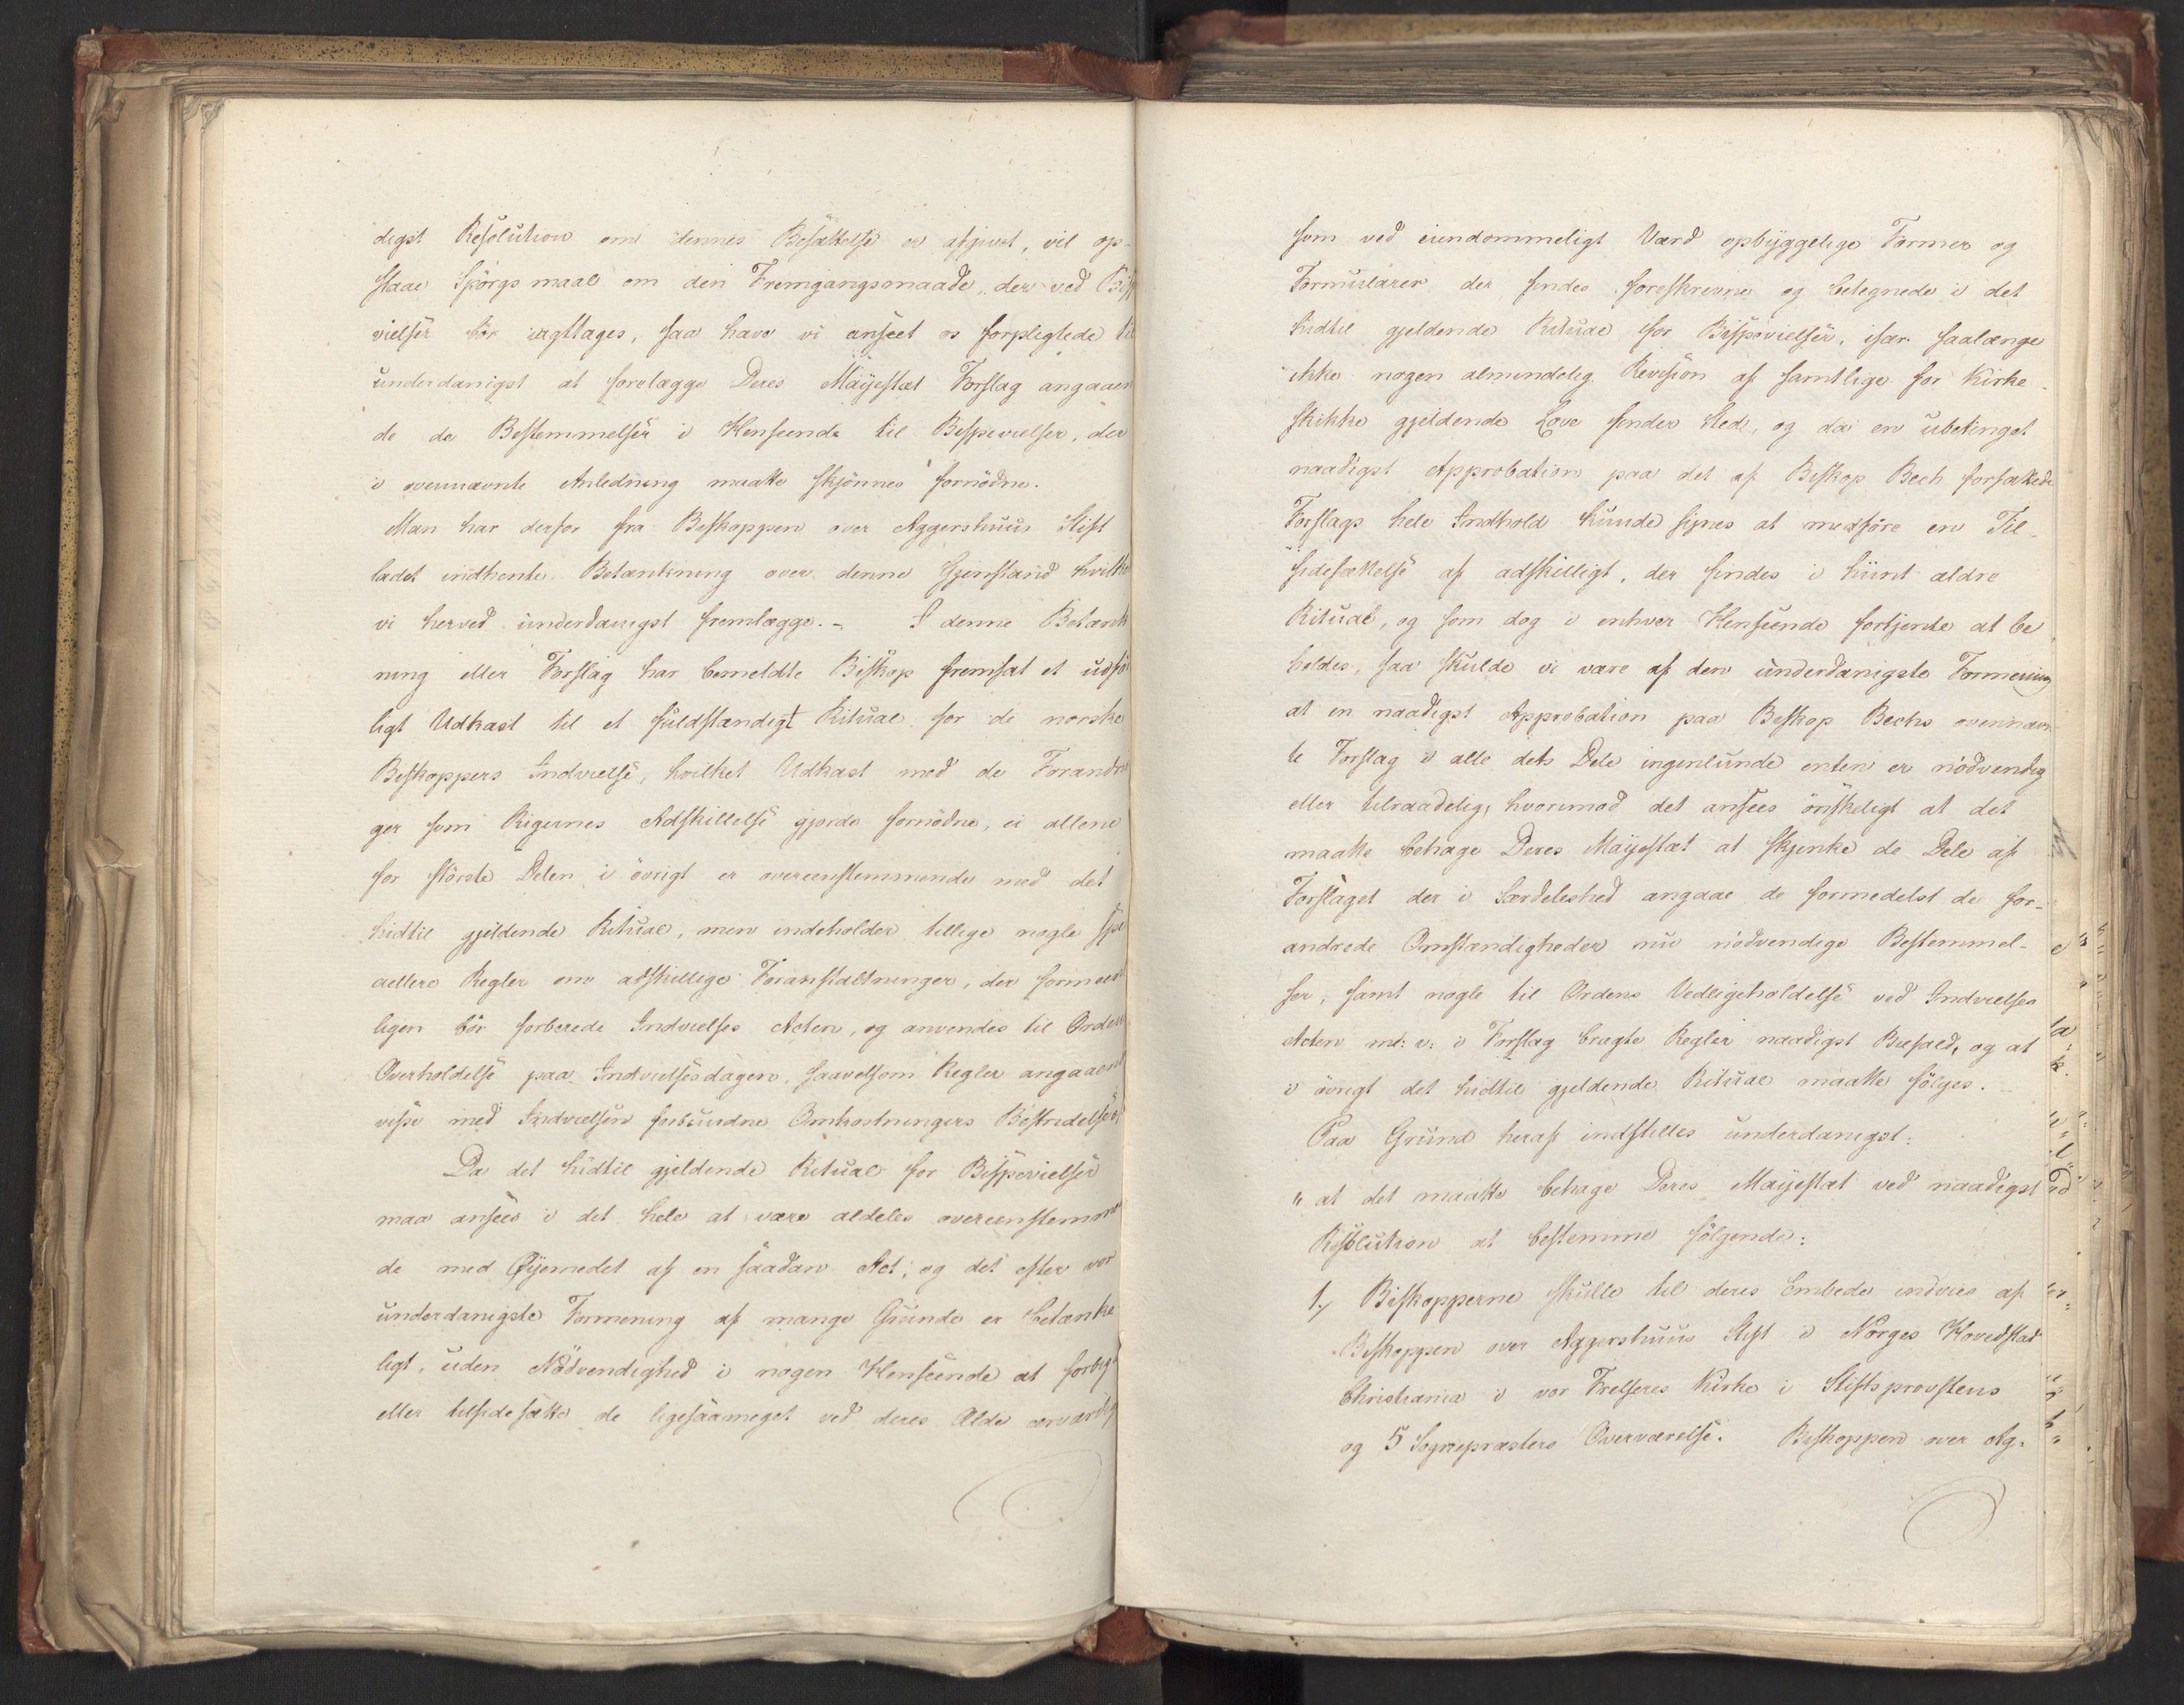 digst Resolution om dennes Besættelse er afgivet, vil op-
staae Spörgsmaal om den Fremgangsmaade, der ved Bisp
vielser bör iagttages, saa have vi anseet os forpligtede til
underdanigst at forelægge Deres Mayestæt Forslag angaaen
de de Bestemmelser i Henseende til Bispevielser, der
i overnævnte Anledning maatte skjönnes fornödne.
Man har derfor fra Biskoppen over Aggershuus Stift
ladet indhente Betænkning over denne Gjenstand hvilke
vi herved underdanigst fremlægge. - I denne Betænk
ning eller Forslag har bemeldte Biskop fremsat et udför
ligt Udkast til et fuldstændigt Ritual for de norske
Biskoppers Indvielse, hvilket Udkast med de Forandrin
ger som Rigernes Adskillelse gjorde fornödne, ei allene
for störste Delen i övrigt er overeenstemmende med det
hidtil gjeldende Ritual, men indeholder tillige nogle spe
ciellere Regler om adskillige Foranstaltninger, der formeent
ligen bör forberede Indvielses Acten, og anvendes til Ordens
Overholdelse paa Indvielsesdagen, saavelsom Regler angaaende
visse med Indvielsen forbundne Omkostningers Bestridelse.
Da det hidtil gjeldende Ritual for Bispevielser
maa ansees i det hele at være aldeles overeenstemmen
de med Øyemedet af en saadan Act, og det efter vor
underdanigste Formening af mange Grunde er betænke
ligt, uden Nödvendighed i nogen Henseende at forbigaa
eller tilsidesætte de ligesaameget ved deres Ælde ærværdige
som ved eiendommeligt Værd opbyggelige Former og
Formularer der findes foreskrevne og betegnede i det
hidtil gjeldende Ritual for Bispevielser, især saalænge
ikke nogen almindelig Revision af samtlige for Kirke-
skikke gjeldende Love finder Sted, og da en ubetinget
naadigst Approbation paa det af Biskop Bech forfattede
Forslags hele Indhold kunde synes at medföre en Til-
sidesættelse af adskilligt, der findes i hiint ældre
Ritual, og som dog i enhver Henseende fortjente at be
holdes, saa skulde vi være af den underdanigste Formening
at en naadigst Approbation paa Biskop Bechs ovennævn
te Forslag i alle dets Dele ingenlunde enten er nödvendig
eller tilraadelig, hvorimod det ansees önskeligt at det
maatte behage Deres Mayestæt at skjenke de Dele af
Forslaget der i Særdeleshed angaae de formedelst de for-
andrede Omstændigheder nu nödvendige Bestemmel-
ser, samt nogle til Ordens Vedligeholdelse ved Indvielses
Acten m: v: i Forslag bragte Regler naadigst Biefald, og at
i övrigt det hidtil gjeldende Ritual maatte fölges. -
Paa Grund heraf indstilles underdanigst:
" at det maatte behage Deres Mayestæt ved naadigst
Resolution at bestemme fölgende:
1.) Biskopperne skulle til deres Embede indvies af
Biskoppen over Aggershuus Stift i Norges Hovedstad
Christiania i vor Frelseres Kirke i Stiftsprovstens
og 5 Sognepræsters Overværelse. Biskoppen over Ag-